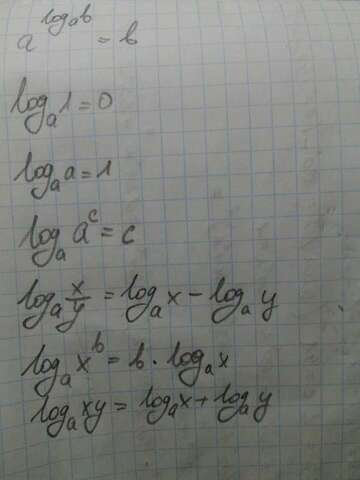 a^{log_a b} = b
log_a 1 = 0
log_a a = 1
log_a a^c = c
log_a x/y = log_a x - log_a y
log_a x^b = b · log_a x
log_a xy = log_a x + log_a y